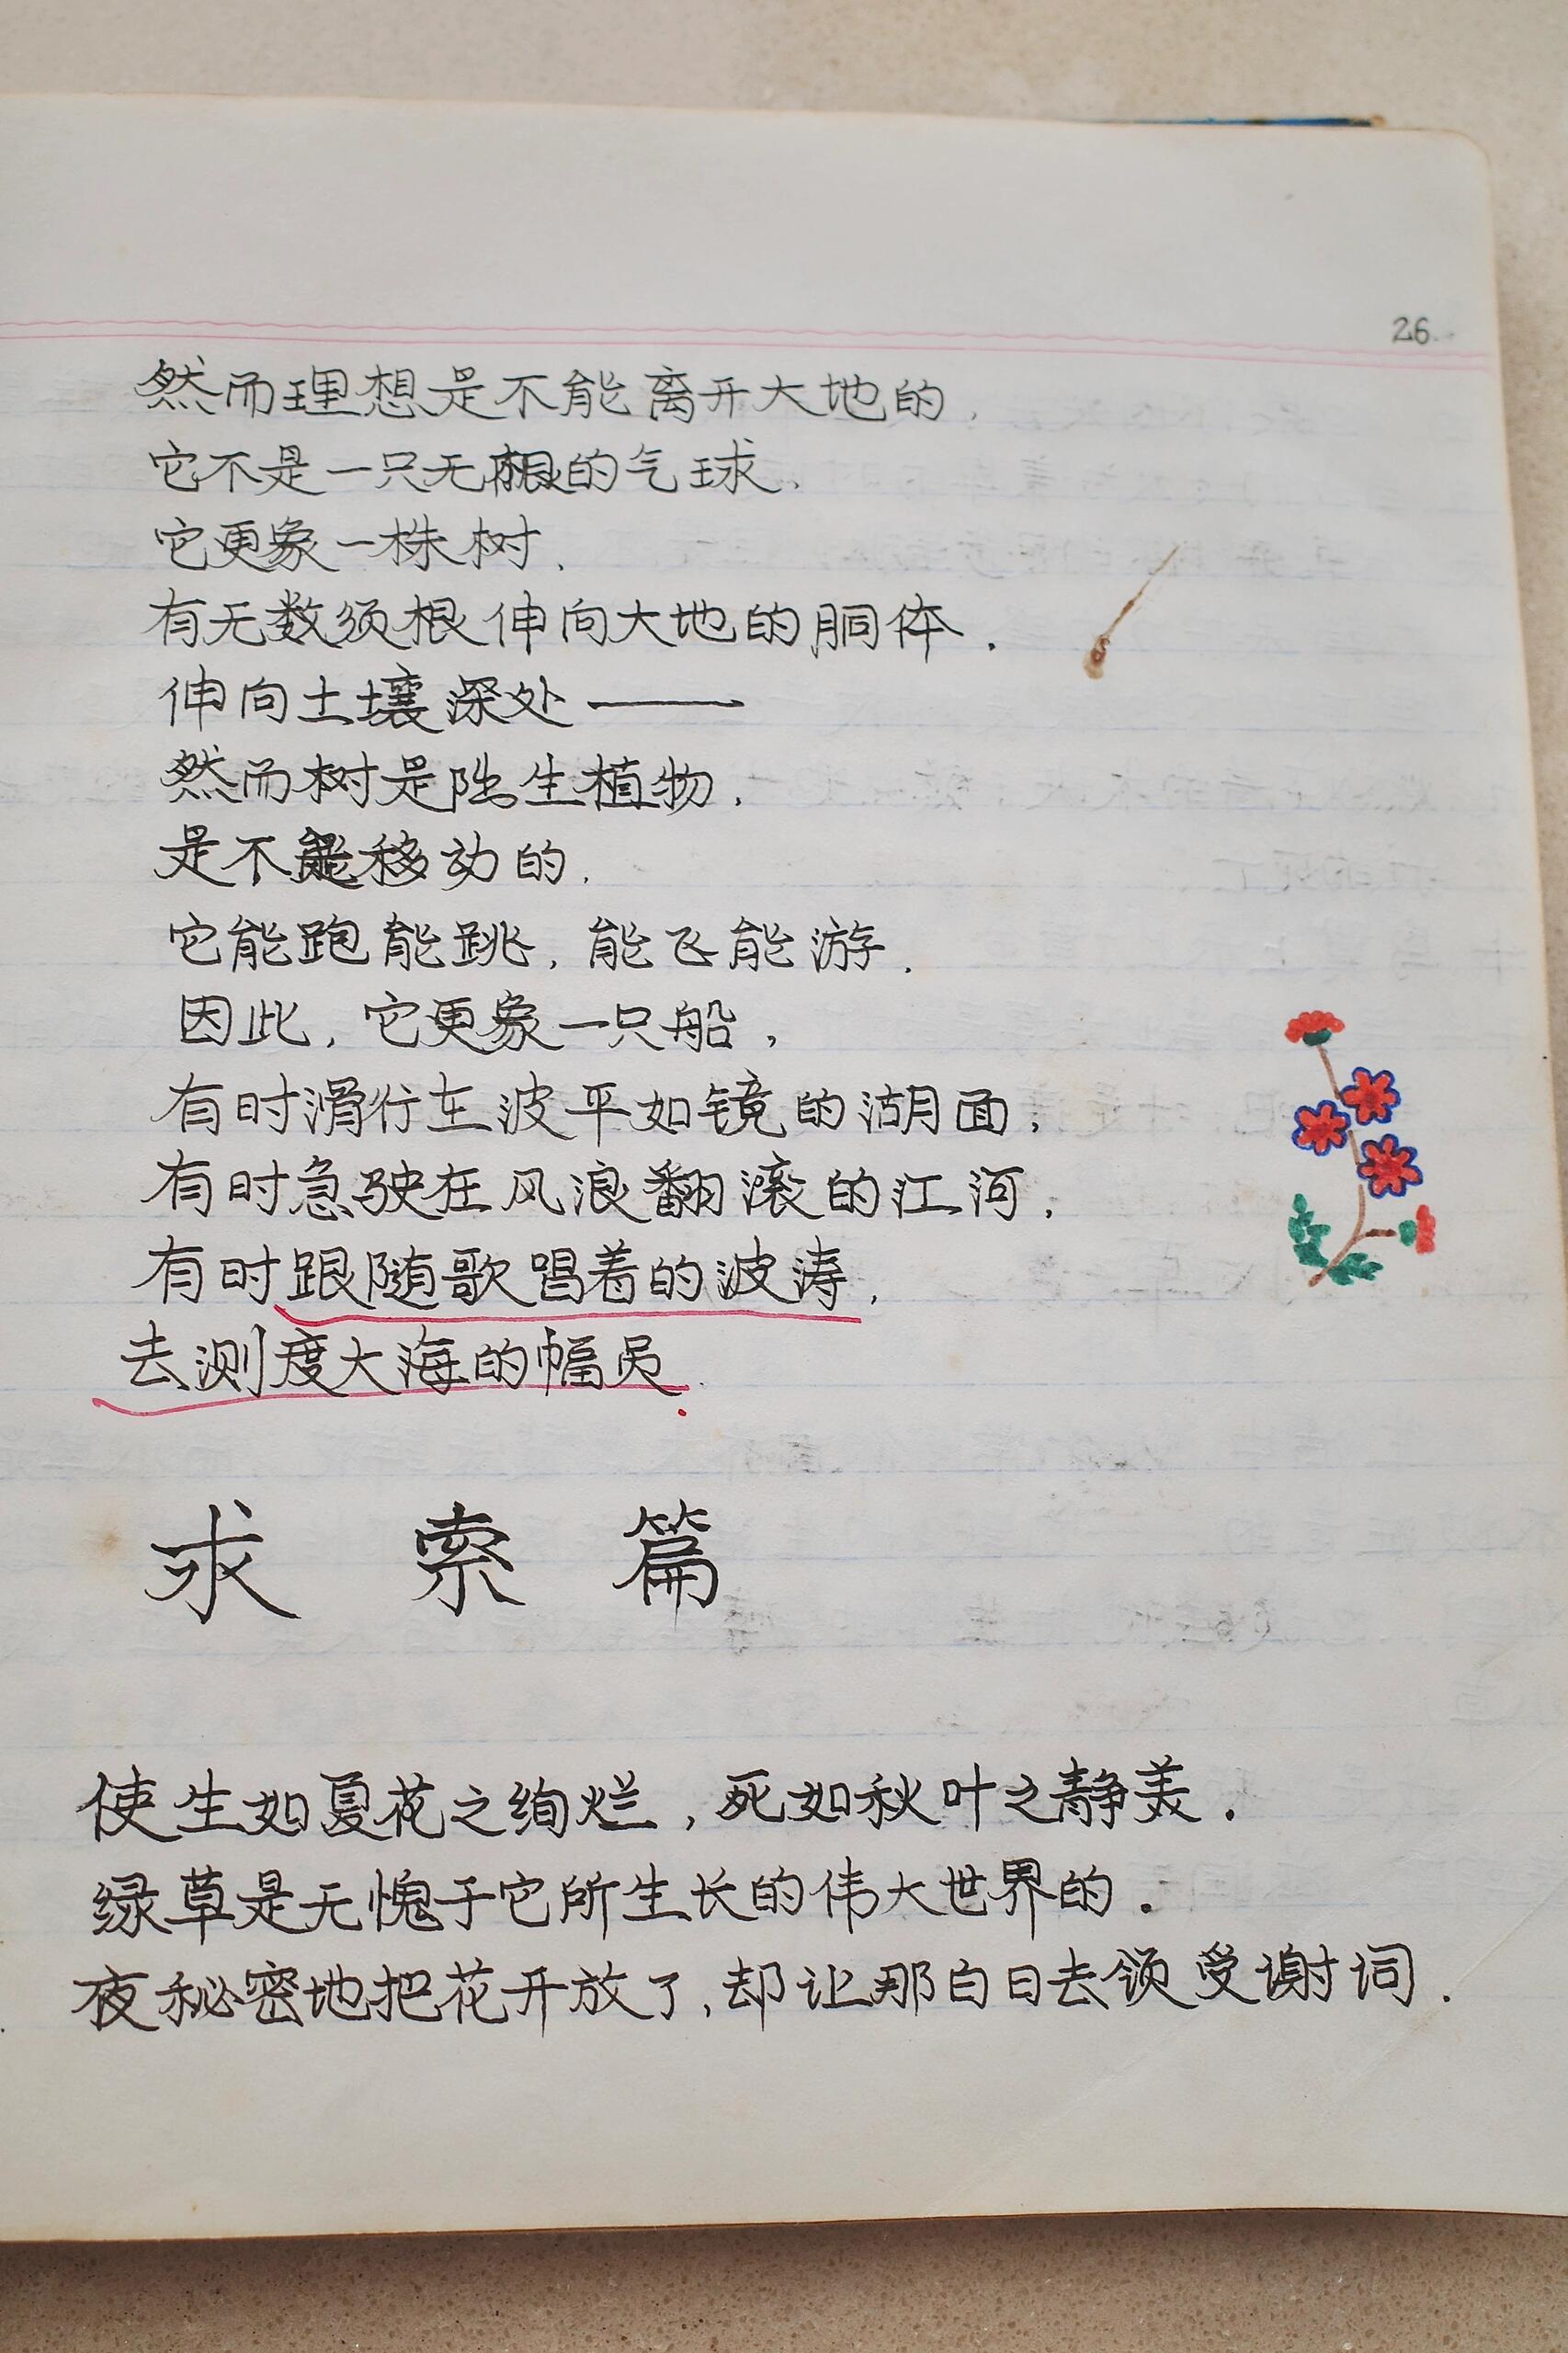 26
然而理想是不能离开大地的，
它不是一只无根的气球，
它更象一株树，
有无数须根伸向大地的胴体．
伸向土壤深处——
然而树是陆生植物，
是不能移动的．
它能跑能跳，能飞能游．
因此，它更象一只船，
有时滑行在波平如镜的湖面，
有时急驶在风浪翻滚的江河，
有时跟随歌唱着的波涛，
去测度大海的幅员．
求索篇
使生如夏花之绚烂，死如秋叶之静美．
绿草是无愧于它所生长的伟大世界的．
夜秘密地把花开放了，却让那白日去领受谢词．